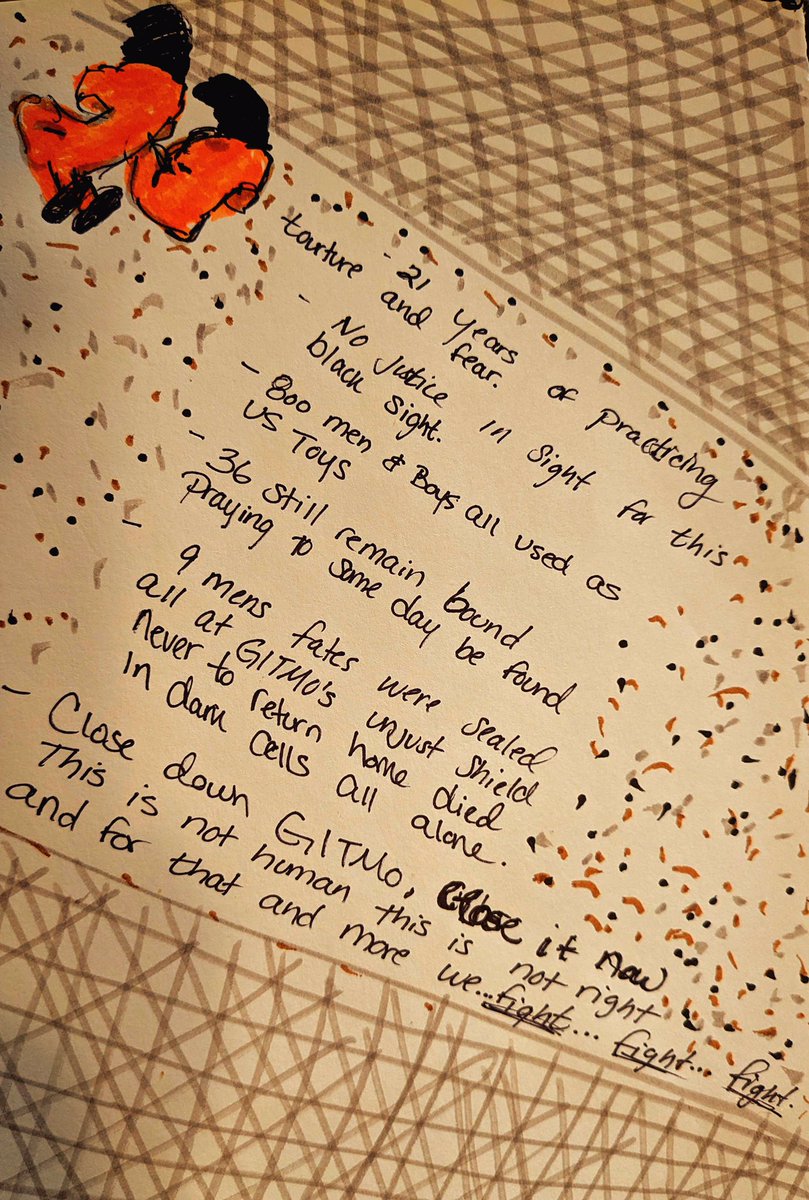 - 21 years of practicing
tourture and fear.
- No Justice in Sight for this
black sight.
- 800 men & Boys all used as
US Toys
- 36 still remain bound
Praying to some day be found
- 9 mens fates were sealed
all at GITMO's unjust shield
Never to return home died
In dark cells all alone.
- Close down GITMO, close it now
This is not human this is not right
and for that and more we...fight... fight... fight.